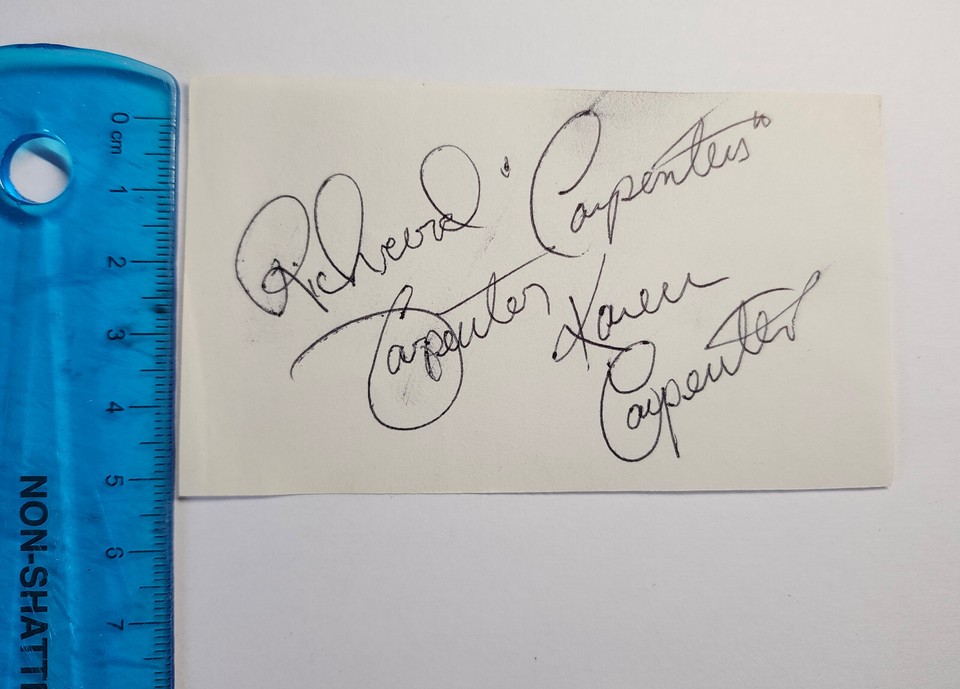 0 cm
1
2
3
4
5
6
7
NON-SHATT
Richard "Carpenters"
Carpenter Karen
Carpenter